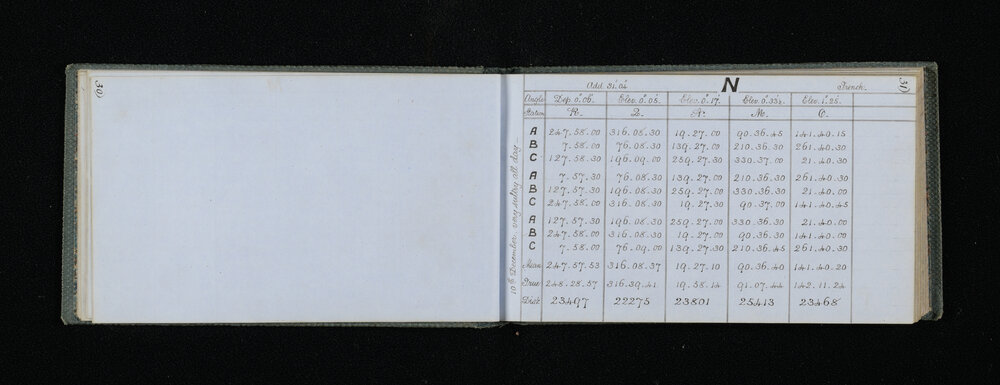 30
31
Add 31'.04" N French.
Angle Dep. 0°.06'. Elev. 0°.05'. Elev. 0°.17'. Elev. 0°.33½ Elev. 1°.25'.
Station R. Q. A. M. C.
A 247.58.00 316.08.30 19.27.00 90.36.45 141.40.15
B 7.58.00 76.08.30 139.27.00 210.36.30 261.40.30
C 127.58.30 196.09.00 259.27.30 330.37.00 21.40.30
A 7.57.30 76.08.30 139.27.00 210.36.30 261.40.30
B 127.57.30 196.08.30 259.27.00 330.36.30 21.40.00
C 247.58.00 316.08.30 19.27.30 90.37.00 141.40.45
A 127.57.30 196.08.30 259.27.00 330.36.30 21.40.00
B 247.58.00 316.08.30 19.27.00 90.36.30 141.40.00
C 7.58.00 76.09.00 139.27.30 210.36.45 261.40.30
Mean 247.57.53 316.08.37 19.27.10 90.36.40 141.40.20
True 248.28.57 316.39.41 19.58.14 91.07.44 142.11.24
Dist. 23497 22275 23801 25413 23468
10th December very sultry all day